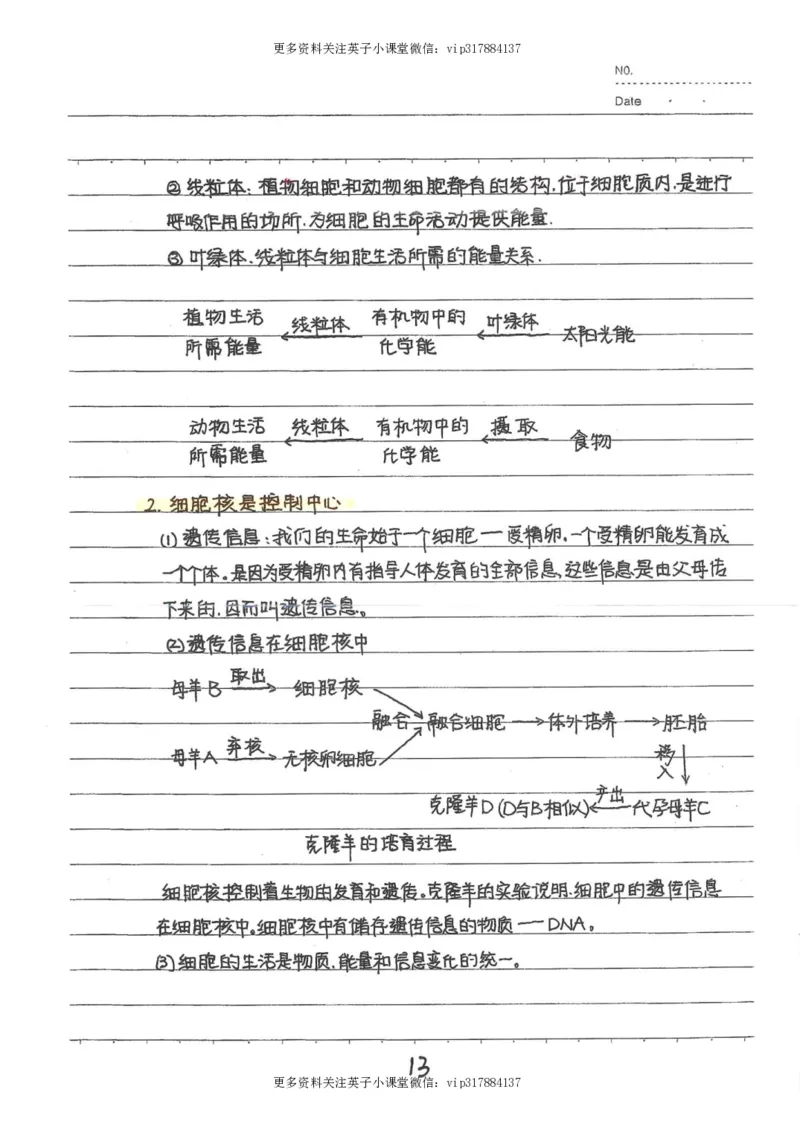 更多资料关注英子小课堂微信：vip317884137
NO.
Date
②线粒体：植物细胞和动物细胞都有的结构，位于细胞质内，是进行
呼吸作用的场所，为细胞的生命活动提供能量.
③叶绿体、线粒体与细胞生活所需的能量关系.
植物生活 线粒体 有机物中的 叶绿体 太阳光能
所需能量 化学能
动物生活 线粒体 有机物中的 摄取 食物
所需能量 化学能
2. 细胞核是控制中心
(1)遗传信息：我们的生命始于一个细胞——受精卵.一个受精卵能发育成
一个个体.是因为受精卵内有指导人体发育的全部信息,这些信息是由父母传
下来的.因而叫遗传信息。
(2)遗传信息在细胞核中
母羊B 取出→ 细胞核
融合→融合细胞→体外培养→胚胎
母羊A 弃核→ 无核卵细胞
移入
克隆羊D(D与B相似)←产出 代孕母羊C
克隆羊的培育过程
细胞核控制着生物的发育和遗传。克隆羊的实验说明.细胞中的遗传信息
在细胞核中。细胞核中有储存遗传信息的物质——DNA。
(3)细胞的生活是物质,能量和信息变化的统一。
13
更多资料关注英子小课堂微信：vip317884137